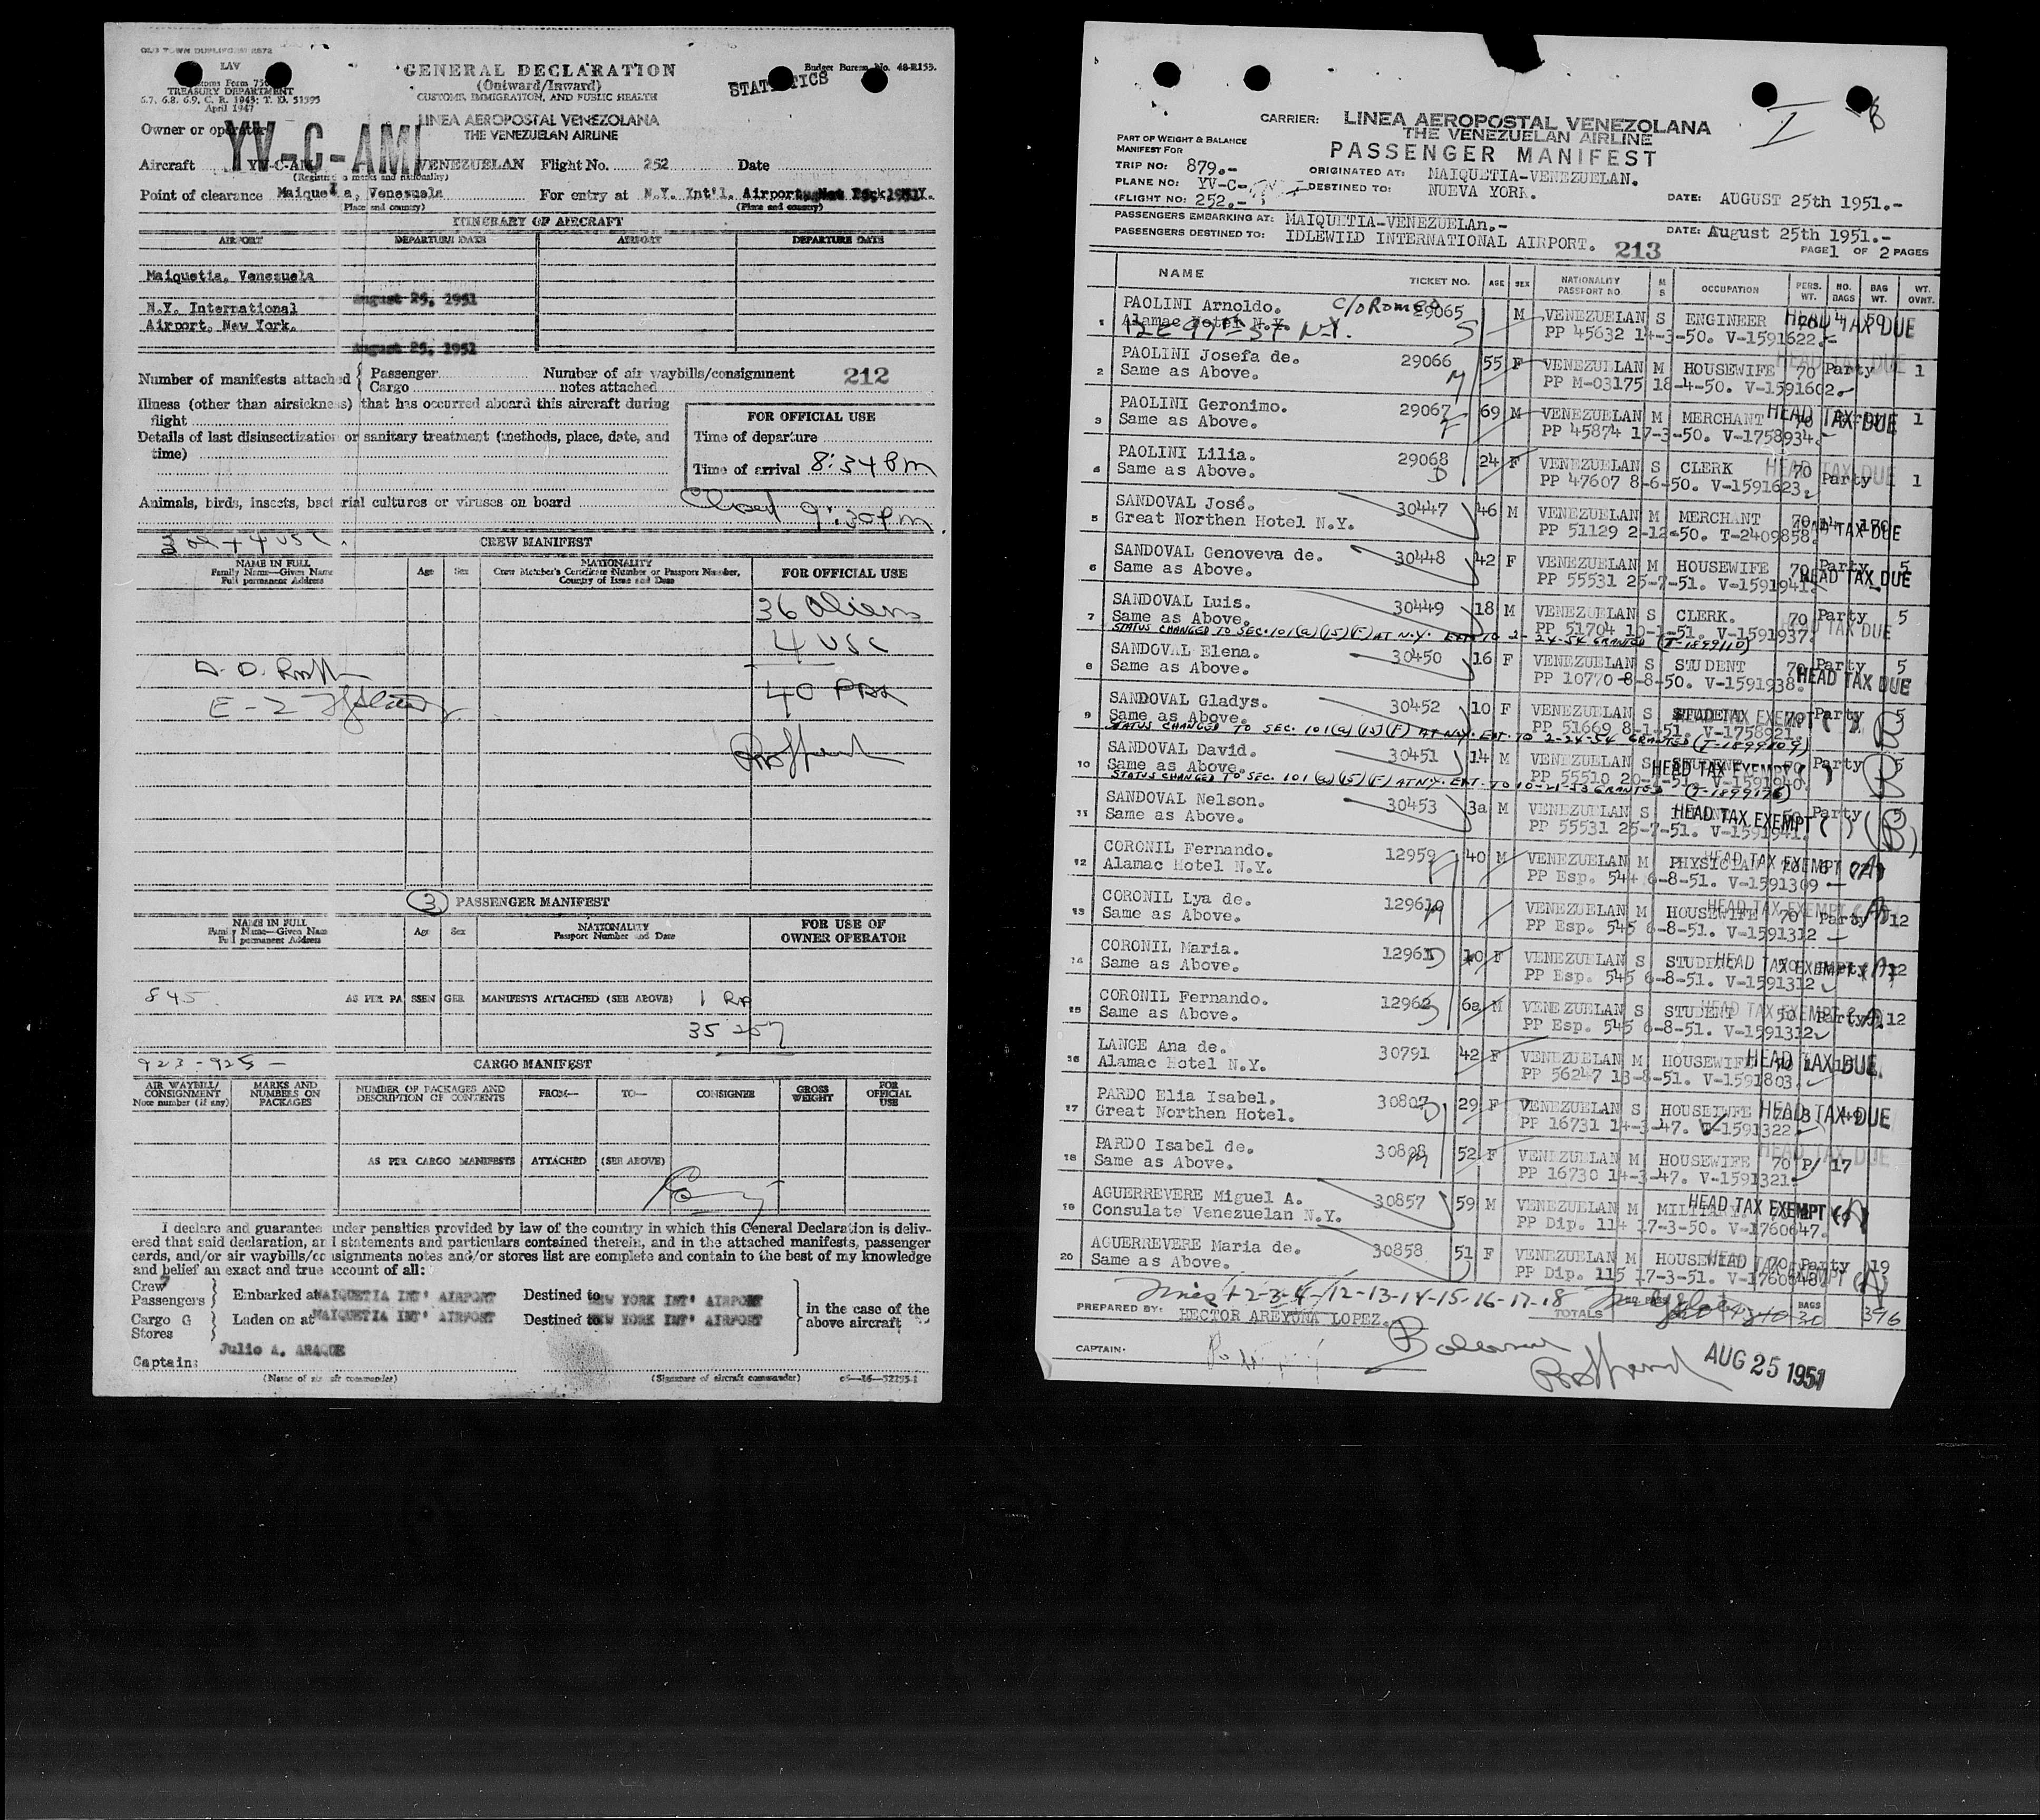 OLD TOWN DUPLIFORM 2872
LAV
Customs Form 75
TREASURY DEPARTMENT
6.7, 6.8, 6.9, C. R. 1943; T. D. 51595
April 1947
GENERAL DECLARATION
(Outward/Inward)
CUSTOMS, IMMIGRATION, AND PUBLIC HEALTH
Budget Bureau No. 48-R153.
STATISTICS
LINEA AEROPOSTAL VENEZOLANA
THE VENEZUELAN AIRLINE
Owner or operator
YV-C-AMI
Aircraft YV-C-AM VENEZUELAN Flight No. 252 Date
(Registration marks and nationality)
Point of clearance Maiquetia, Venezuela For entry at N.Y. Int'l. Airport,
(Place and country) (Place and country)
ITINERARY OF AIRCRAFT
AIRPORT DEPARTURE DATE AIRPORT DEPARTURE DATE
Maiquetia, Venezuela
August 25, 1951
N.Y. International
Airport, New York.
August 25, 1951
Number of manifests attached Passenger Number of air waybills/consignment 212
Cargo notes attached
Illness (other than airsickness) that has occurred aboard this aircraft during
flight
Details of last disinsectization or sanitary treatment (methods, place, date, and
time)
FOR OFFICIAL USE
Time of departure
Time of arrival 8:34 Pm
Animals, birds, insects, bacterial cultures or viruses on board
Closed 9:30 Pm
CREW MANIFEST
NAME IN FULL
Family Name—Given Name
Full permanent Address
Age Sex
NATIONALITY
Crew Member's Certificate Number or Passport Number,
Country of Issue and Date
FOR OFFICIAL USE
36 Aliens
4 USC
40 Pax
(3) PASSENGER MANIFEST
NAME IN FULL
Family Name—Given Name
Full permanent Address
Age Sex
NATIONALITY
Passport Number and Date
FOR USE OF
OWNER OPERATOR
845.
AS PER PASSENGER MANIFESTS ATTACHED (SEE ABOVE)
35 257
923-925-
CARGO MANIFEST
AIR WAYBILL/
CONSIGNMENT
Note number (if any)
MARKS AND
NUMBERS ON
PACKAGES
NUMBER OF PACKAGES AND
DESCRIPTION OF CONTENTS
FROM— TO— CONSIGNEE
GROSS
WEIGHT
FOR
OFFICIAL
USE
AS PER CARGO MANIFESTS ATTACHED (SEE ABOVE)
I declare and guarantee under penalties provided by law of the country in which this General Declaration is deliv-
ered that said declaration, and statements and particulars contained therein, and in the attached manifests, passenger
cards, and/or air waybills/consignments notes and/or stores list are complete and contain to the best of my knowledge
and belief an exact and true account of all:
Crew
Passengers Embarked at MAIQUETIA INT' AIRPORT Destined to NEW YORK INT' AIRPORT
Cargo G Laden on at MAIQUETIA INT' AIRPORT Destined to NEW YORK INT' AIRPORT
Stores
in the case of the
above aircraft
Julio A. ARAQUE
Captain:
(Name of aircraft commander) (Signature of aircraft commander) 16—52195-1
CARRIER: LINEA AEROPOSTAL VENEZOLANA
THE VENEZUELAN AIRLINE
PASSENGER MANIFEST
PART OF WEIGHT & BALANCE
MANIFEST FOR
TRIP NO: 879.- ORIGINATED AT: MAIQUETIA-VENEZUELAN.
PLANE NO: YV-C- DESTINED TO: NUEVA YORK. DATE: AUGUST 25th 1951.-
(FLIGHT NO: 252.-
PASSENGERS EMBARKING AT: MAIQUETIA-VENEZUELAn.- DATE: August 25th 1951.-
PASSENGERS DESTINED TO: IDLEWILD INTERNATIONAL AIRPORT. 213 PAGE 1 OF 2 PAGES
NAME TICKET NO. AGE SEX NATIONALITY PASSPORT NO. M S OCCUPATION PERS. WT. NO. BAGS BAG WT. WT. OVWT.
1 PAOLINI Arnoldo. c/o Romeo 29065 M VENEZUELAN S ENGINEER HEAD TAX DUE
Alamac Hotel N.Y. PP 45632 14-3-50. V-1591622.
2 PAOLINI Josefa de. 29066 55 F VENEZUELAN M HOUSEWIFE 70 Party 1
Same as Above. PP M-03175 18-4-50. V-1591602.
3 PAOLINI Geronimo. 29067 69 M VENEZUELAN M MERCHANT HEAD TAX DUE 1
Same as Above. PP 45874 17-3-50. V-1758934.
4 PAOLINI Lilia. 29068 24 F VENEZUELAN S CLERK 70 Party HEAD TAX DUE 1
Same as Above. PP 47607 8-6-50. V-1591623.
5 SANDOVAL José. 30447 46 M VENEZUELAN M MERCHANT 70 14 170 HEAD TAX DUE
Great Northen Hotel N.Y. PP 51129 2-12-50. T-2409858.
6 SANDOVAL Genoveva de. 30448 42 F VENEZUELAN M HOUSEWIFE 70 Party 5
Same as Above. PP 55531 25-7-51. V-1591941. HEAD TAX DUE
7 SANDOVAL Luis. 30449 18 M VENEZUELAN S CLERK. 70 Party 5
Same as Above. PP 51704 10-1-51. V-1591937. HEAD TAX DUE
STATUS CHANGED TO SEC. 101(a)(15)(F) AT N.Y. EXT TO 2-24-54 GRANTED (T-1899110)
8 SANDOVAL Elena. 30450 16 F VENEZUELAN S STUDENT 70 Party 5
Same as Above. PP 10770 8-8-50. V-1591938. HEAD TAX DUE
9 SANDOVAL Gladys. 30452 10 F VENEZUELAN S STUDENT 70 Party 5 HEAD TAX EXEMPT (B)
Same as Above. PP 51669 8-1-51. V-1758921.
STATUS CHANGED TO SEC. 101(a)(15)(F) AT N.Y. EXT. TO 2-24-54 GRANTED (T-1899109)
10 SANDOVAL David. 30451 14 M VENEZUELAN S STUDENT Party 5 HEAD TAX EXEMPT (B)
Same as Above. PP 55510 20-7-51. V-1591940.
STATUS CHANGED TO SEC. 101(a)(15)(F) AT N.Y. EXT. TO 10-21-53 GRANTED (T-1899176)
11 SANDOVAL Nelson. 30453 3a M VENEZUELAN S Party 5 HEAD TAX EXEMPT (B)
Same as Above. PP 55531 25-7-51. V-1591941.
12 CORONIL Fernando. 12959 40 M VENEZUELAN M PHYSICIAN HEAD TAX EXEMPT (A)
Alamac Hotel N.Y. PP Esp. 544 6-8-51. V-1591309
13 CORONIL Lya de. 12961 VENEZUELAN M HOUSEWIFE 70 Party 12 HEAD TAX EXEMPT
Same as Above. PP Esp. 545 6-8-51. V-1591312
14 CORONIL Maria. 12961 10 F VENEZUELAN S STUDENT HEAD TAX EXEMPT 12
Same as Above. PP Esp. 545 6-8-51. V-1591312
15 CORONIL Fernando. 12962 6a M VENEZUELAN S STUDENT 50 Party 12 HEAD TAX EXEMPT
Same as Above. PP Esp. 545 6-8-51. V-1591312
16 LANGE Ana de. 30791 42 F VENEZUELAN M HOUSEWIFE HEAD TAX DUE
Alamac Hotel N.Y. PP 56247 13-8-51. V-1591803.
17 PARDO Elia Isabel. 30807 29 F VENEZUELAN S HOUSEIWFE HEAD TAX DUE
Great Northen Hotel. PP 16731 14-3-47. V-1591322.
18 PARDO Isabel de. 30808 52 F VENEZUELAN M HOUSEWIFE 70 P/ 17 HEAD TAX DUE
Same as Above. PP 16730 14-3-47. V-1591321.
19 AGUERREVERE Miguel A. 30857 59 M VENEZUELAN M MILITARY HEAD TAX EXEMPT (A)
Consulate Venezuelan N.Y. PP Dip. 114 17-3-50. V-1760647.
20 AGUERREVERE Maria de. 30858 51 F VENEZUELAN M HOUSEWIFE 70 Party 19 HEAD TAX EXEMPT (A)
Same as Above. PP Dip. 115 17-3-51. V-1760648.
Lines 1-2-3-4-12-13-14-15-16-17-18
PREPARED BY: HECTOR AREYUNA LOPEZ. TOTALS BAGS 30 396
CAPTAIN:
AUG 25 1951